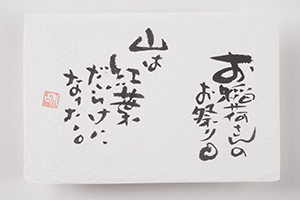 お稲荷さんの
お祭りの
山は
紅葉
だらけに
なった。